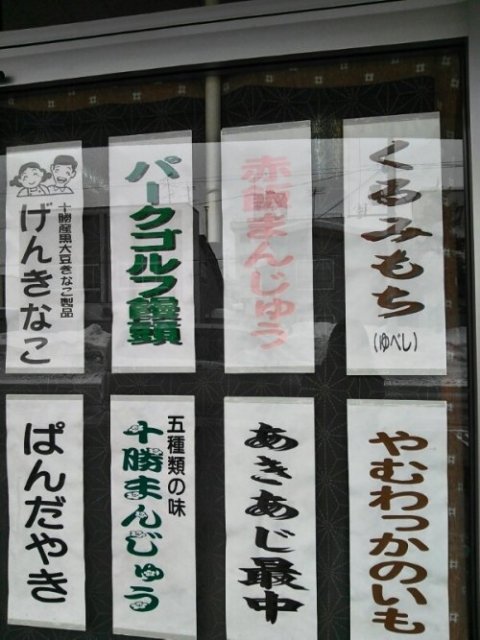 くるみもち
(ゆべし)
赤飯まんじゅう
パークゴルフ饅頭
十勝産黒大豆きなこ製品
げんきなこ
やむわっかのいも
あきあじ最中
五種類の味
十勝まんじゅう
ぱんだやき